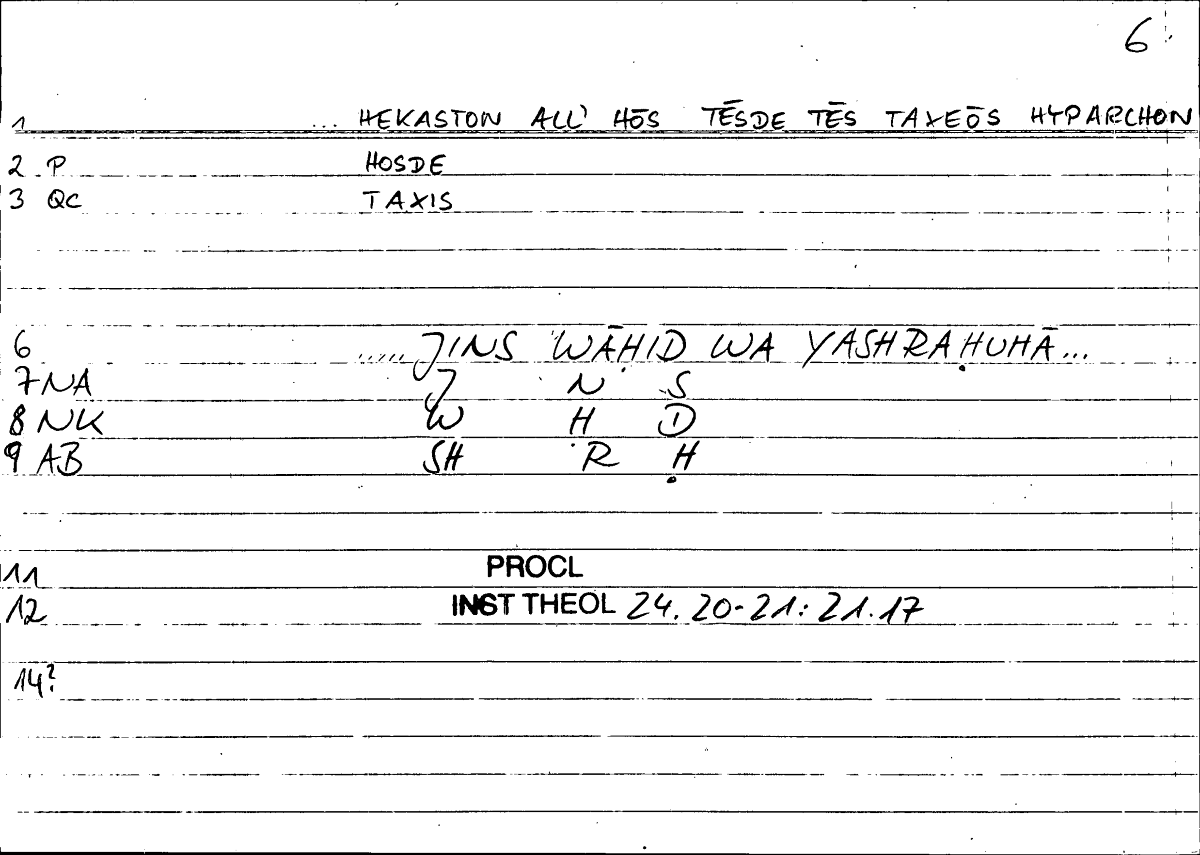 6
1 ... HEKASTON ALL' HŌS TĒSDE TĒS TAXEŌS HYPARCHON
2 P HOSDE
3 QC TAXIS
6 ...... JINS WĀḤID WA YASHRAḤUHĀ...
7 NA J N S
8 NK W Ḥ D
9 AB SH R Ḥ
11 PROCL
12 INST THEOL 24. 20-21: 21.17
14?